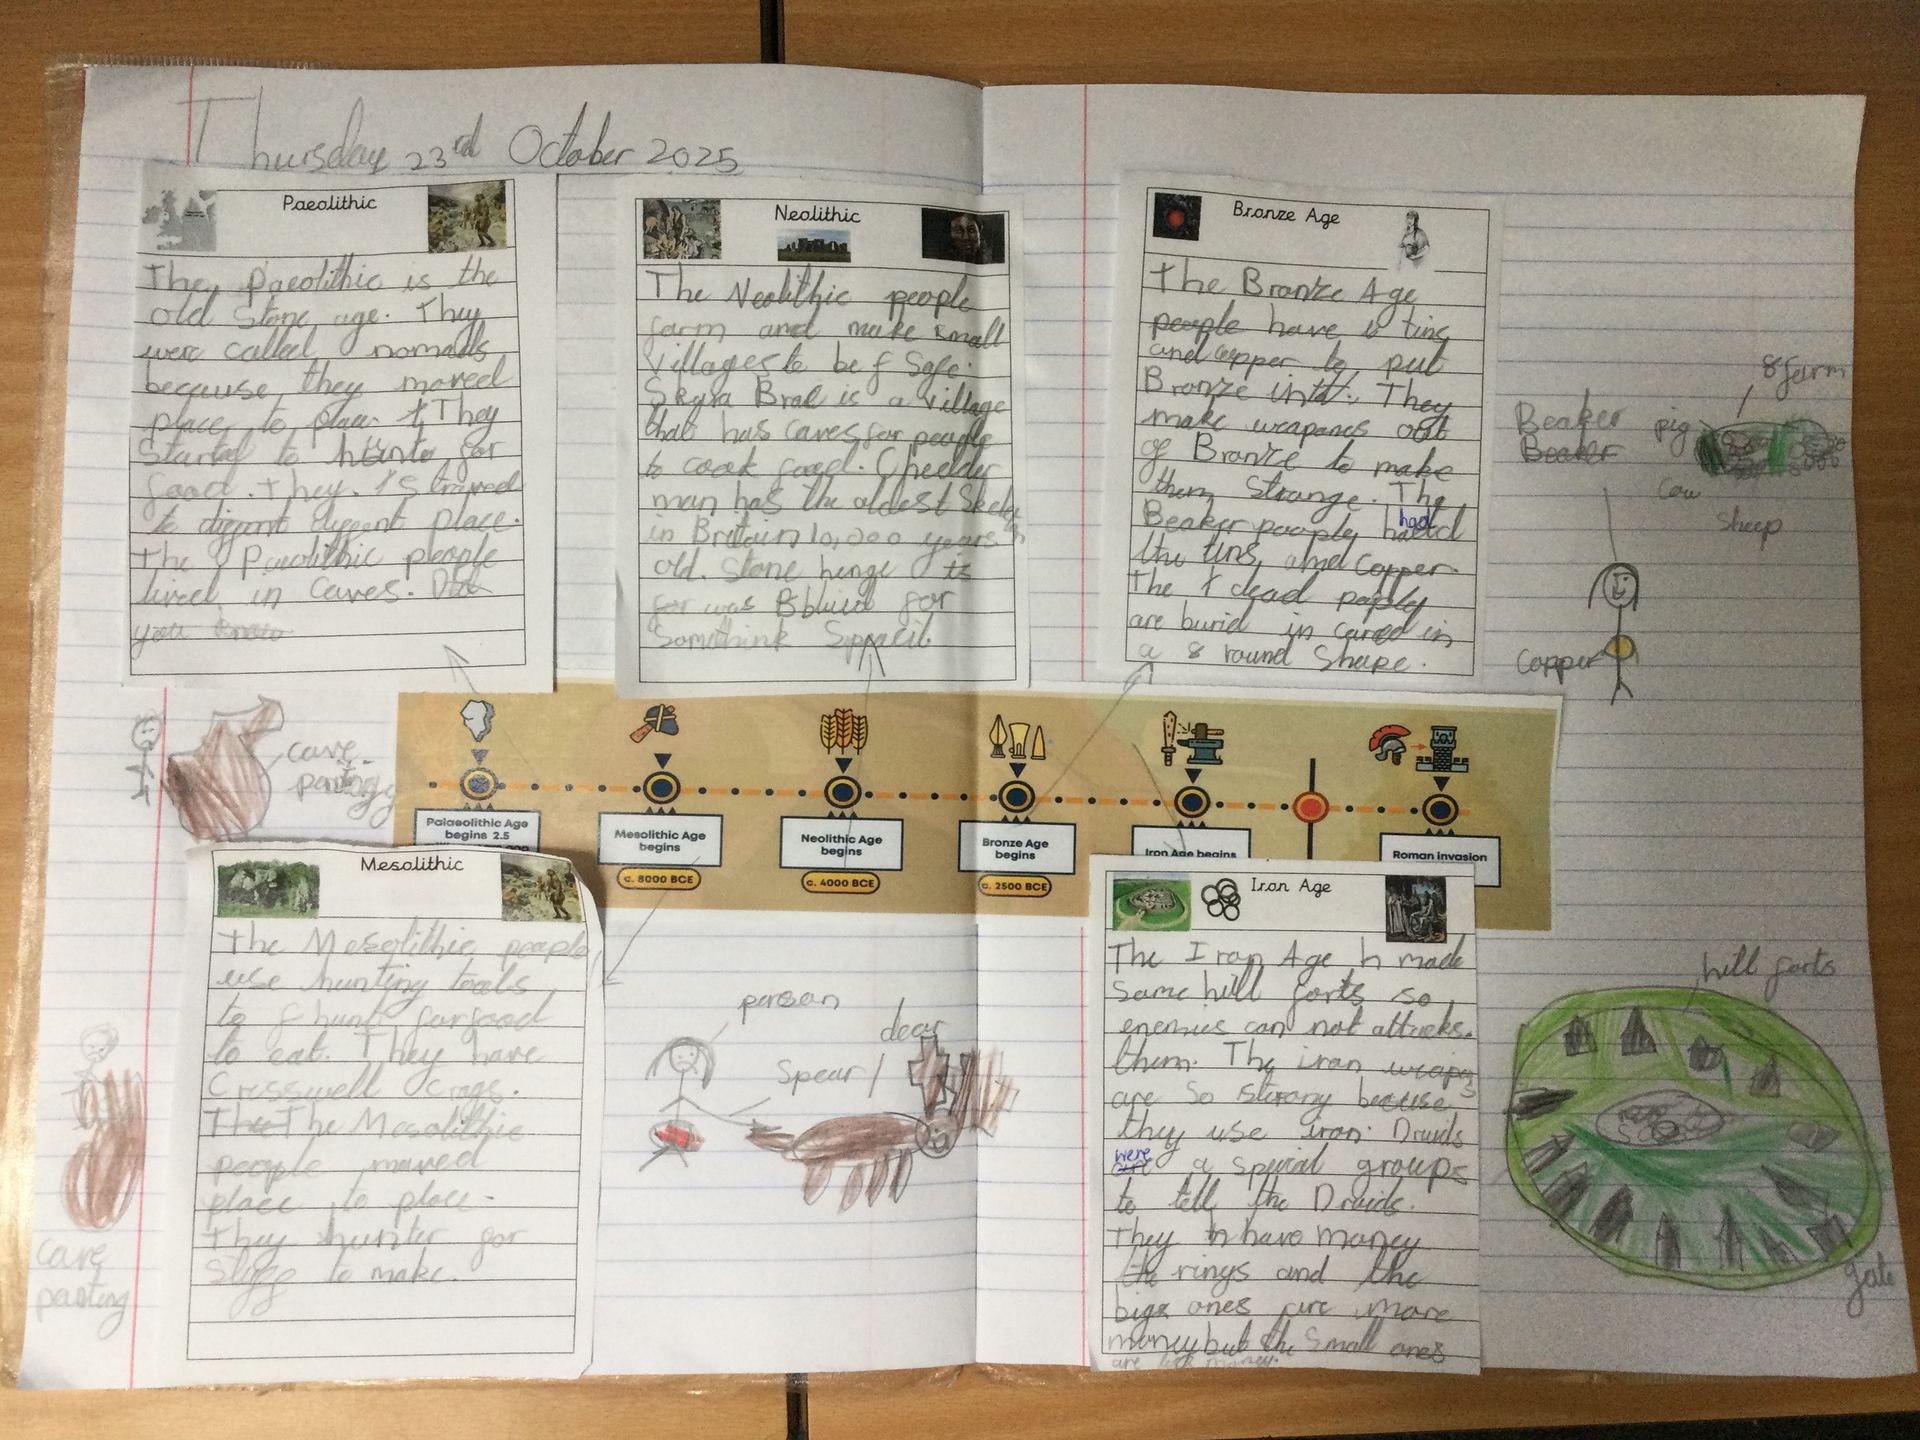 Thursday 23rd October 2025
Paeolithic
The Paeolithic is the
old Stone age. They
were called nomads
because they moved
place to place. They
Started to hunt for
food. They. Straved
to diggent diggent place.
The Paeolithic people
lived in Caves. Did
you know
Neolithic
The Neolithic people
farm and make small
villages to be f Safe.
Skyra Bral is a village
that has caves for people
to cook food. Cheeder
man has the oldest Skelet
in Britain 10,000 years
old. Stone henge is
for was Bbuild for
Somethink Speacil.
Bronze Age
The Bronze Age
people have tins
and copper to put
Bronze into. They
make weapanes out
of Bronze to make
them Strange. The
Beaker people had
the tins and Copper.
The t dead paiply
are burid in cared in
a 8 round Shape.
Beaker
Beaker
8 farm
pig
Cow
Sheep
Copper
cave
panting
Palaeolithic Age
begins 2.5
Mesolithic Age
begins
c. 8000 BCE
Neolithic Age
begins
c. 4000 BCE
Bronze Age
begins
c. 2500 BCE
Iron Age begins
Roman invasion
Mesolithic
The Mesolithic people
use hunting tools
to f hunt for food
to eat. They have
Cresswell Crags.
The The Mesolithic
people moved
place to place.
They hunter for
Stuff to make.
cave
panting
person
Spear
dear
Iron Age
The Iron Age h made
Some hill forts so
enemies can not attacks.
them. The iron weapns
are So storony because
they use iron. Druids
were a Special groups
to tell the Druids.
They h have money
the rings and the
bigs ones are more
money but the Small ones
are less money.
hill forts
gate